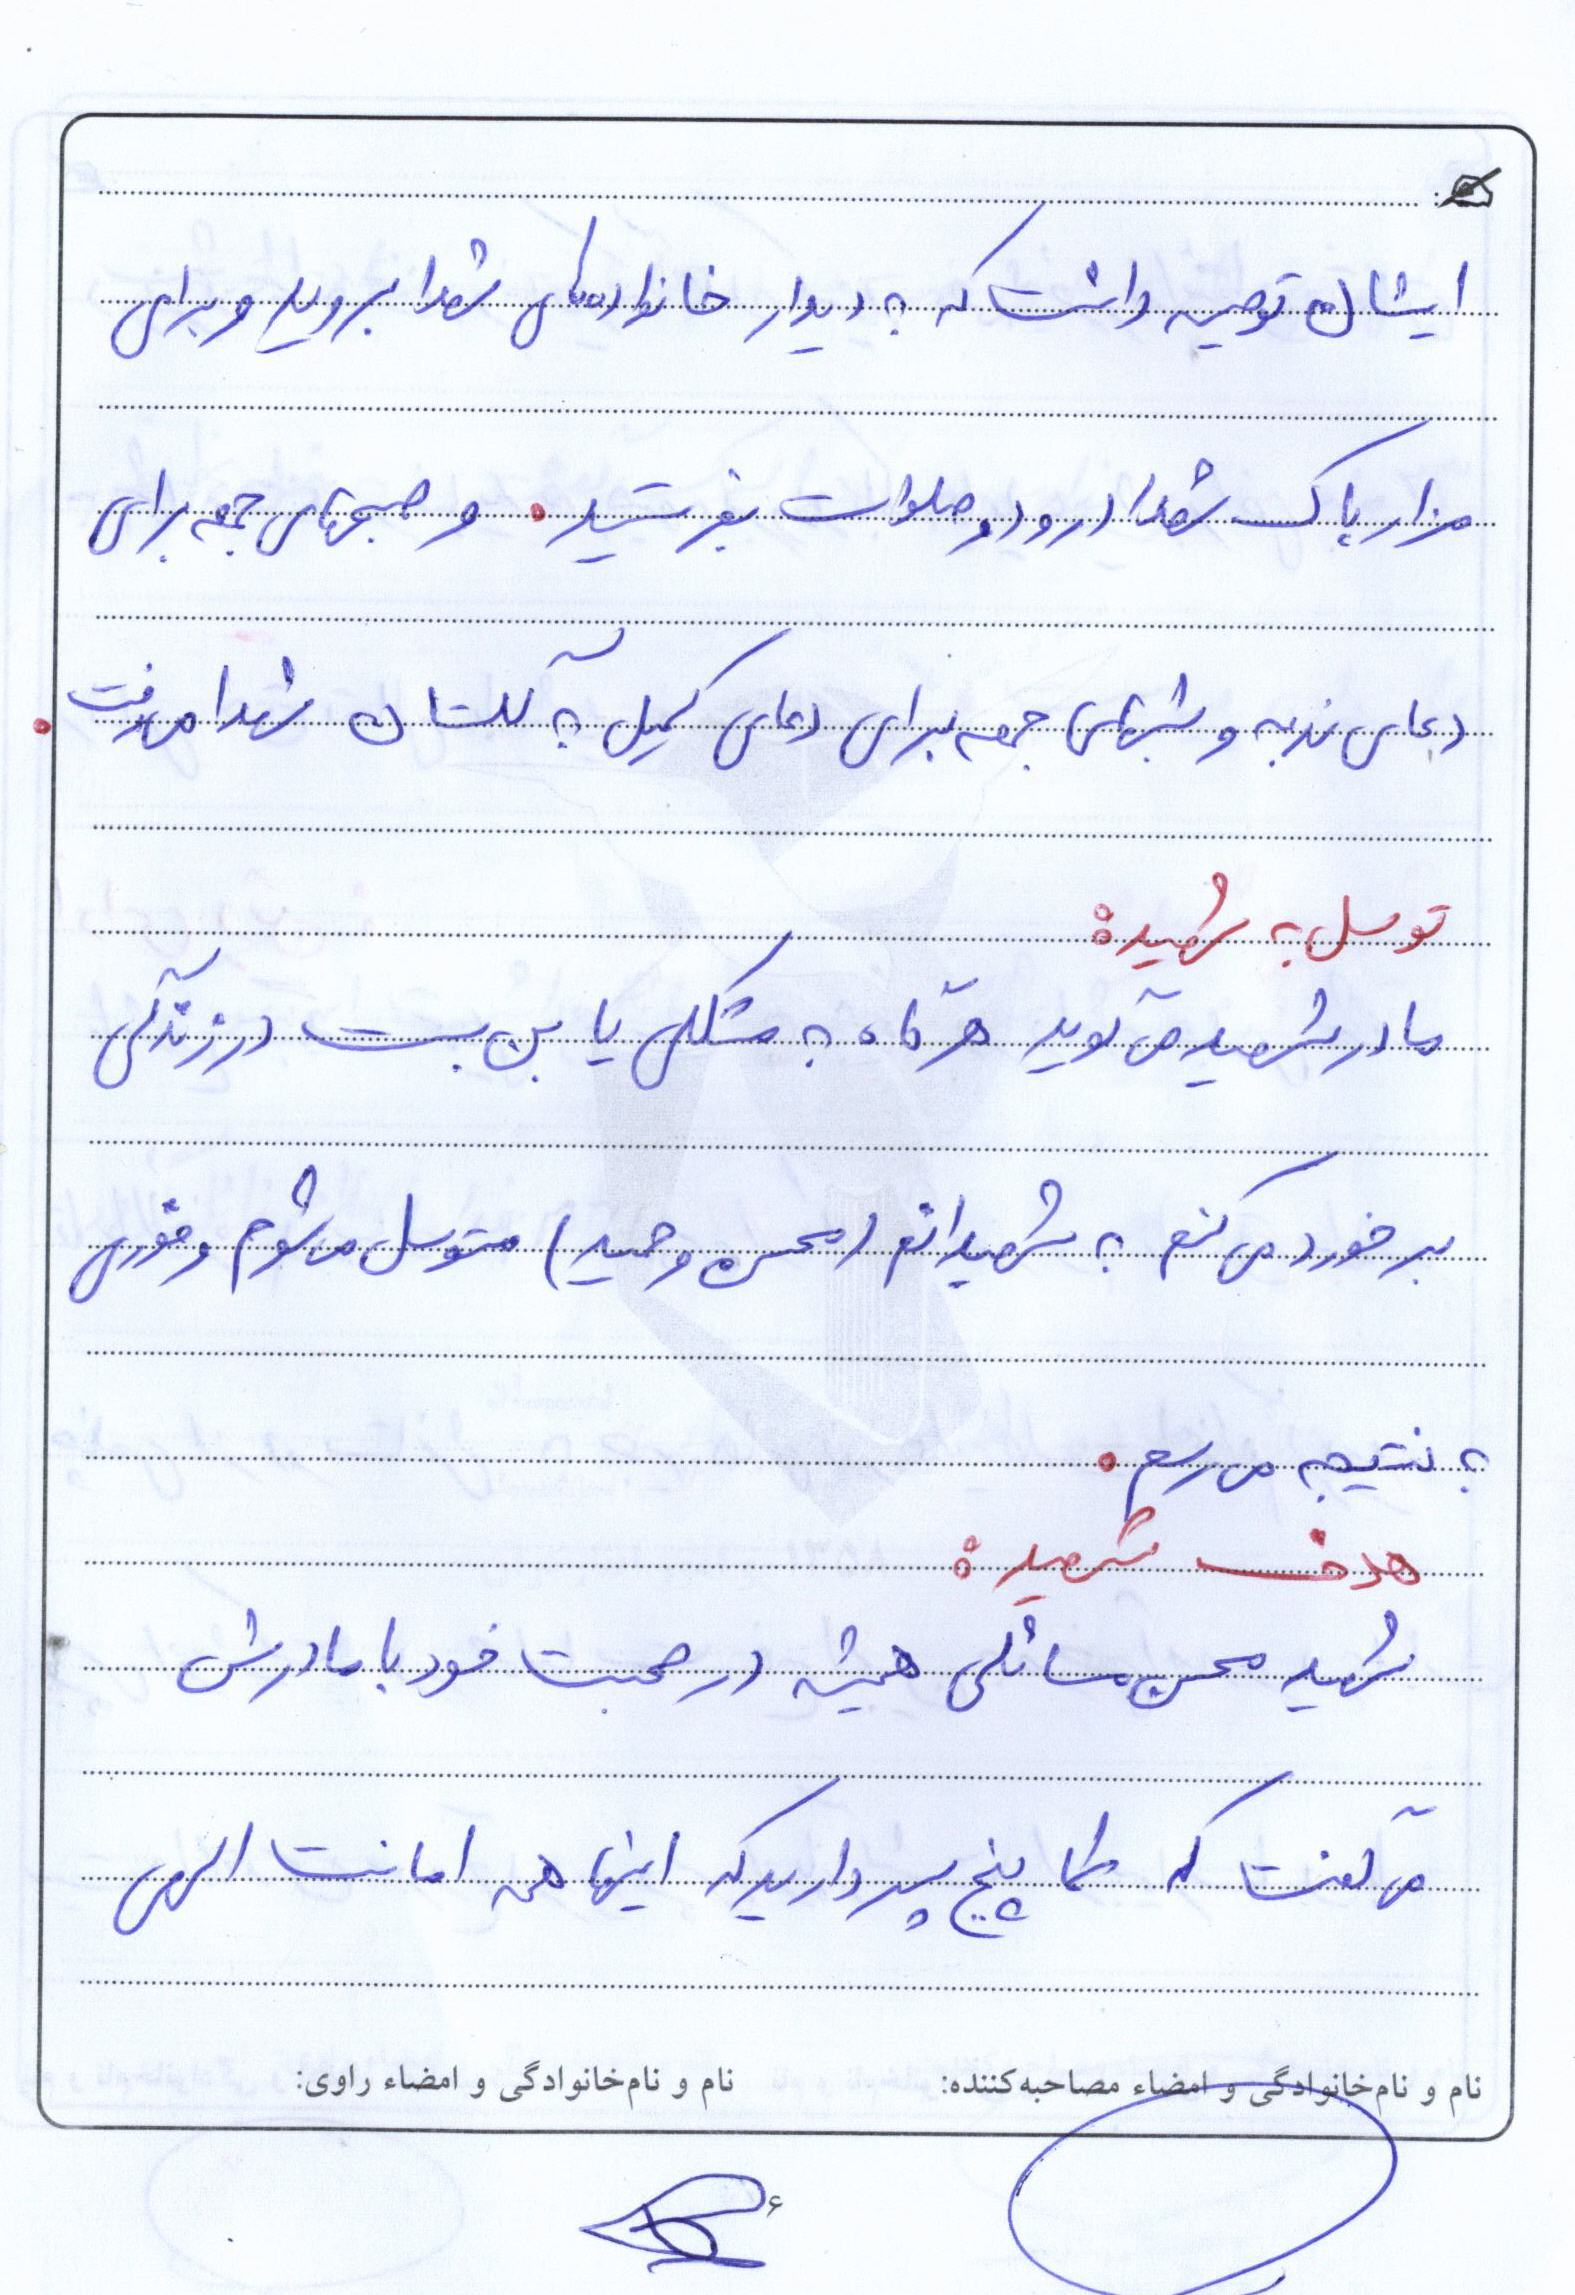 ایشان توصیه داشت که به دیدار خانواده‌های شهدا بروید و برای
مزار پاک شهدا درود و صلوات بفرستید. و صبح‌های جمعه برای
دعای ندبه و شب‌های جمعه برای دعای کمیل به گلستان شهدا می‌رفت.
توسل به شهید:
مادر شهید می‌گوید هرگاه به مشکلی یا بن بست در زندگی
برخورد می‌کنم به شهیدانم (محسن و حمید) متوسل می‌شوم و فوری
به نتیجه می‌رسم.
هدف شهید:
شهید محسن مسائلی همیشه در صحبت خود با مادرش
می‌گفت که شما پنج پسر دارید که اینها همه امانت الهی
نام و نام‌خانوادگی و امضاء مصاحبه‌کننده: نام و نام‌خانوادگی و امضاء راوی:
۶